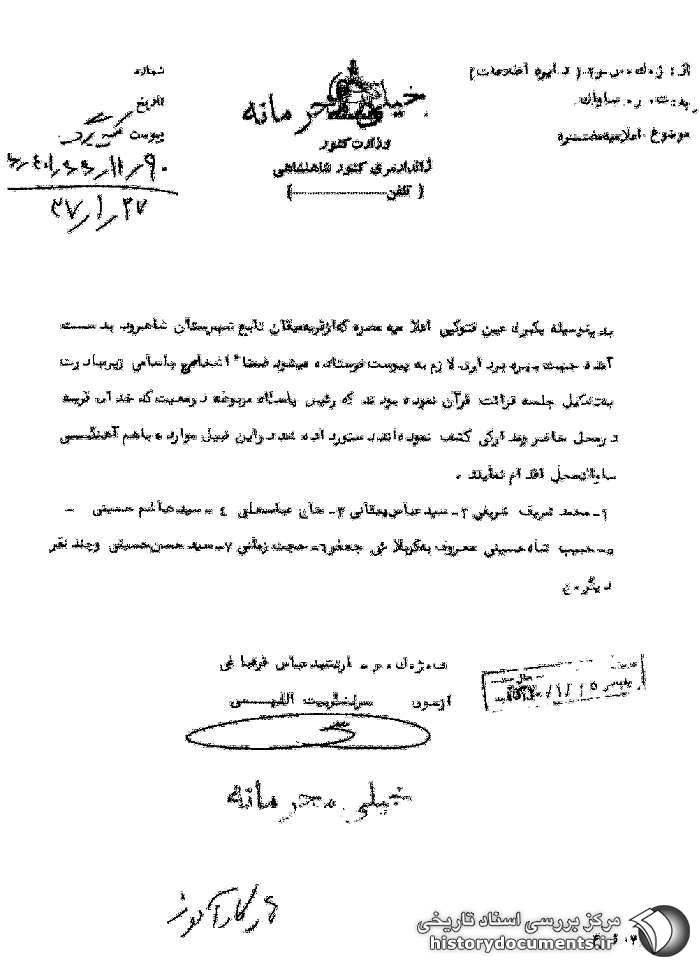 خیلی محرمانه
وزارت کشور
ژاندارمری کشور شاهنشاهی
( تلفن )
شماره
تاریخ
پیوست
۳۷/۱/۲۷
به ر. ساواک
موضوع اعلامیه مضره
بدینوسیله یکبرگ عین فتوکپی اعلامیه مضره که از قریه میقان تابع شهرستان شاهرود بدست
آمده جهت بهره برداری لازم به پیوست فرستاده میشود ضمنا اشخاص با سامی زیر مبادرت
به تشکیل جلسه قرائت قرآن نموده بودند که رئیس پاسگاه مربوطه در معیت کدخدای قریه
در محل حاضر و مدارکی کشف نموده‌اند دستور داده شد در این قبیل موارد با هم آهنگی
ساواک محل اقدام نمایند .
۱- محمد شریف شریفی ۲- سید عباس میقانی ۳- خان عباسعلی ٤ - سید هاشم حسینی -
۵- حبیب شاه حسینی معروف به کربلائی جعفر ٦- حجت زمانی ۷- سید حسن حسینی و چند نفر
دیگر
ف . ژ . ک . ش . ارتشبد عباس قره باغی
از سوی
خیلی محرمانه
مرکز بررسی اسناد تاریخی
historydocuments.ir